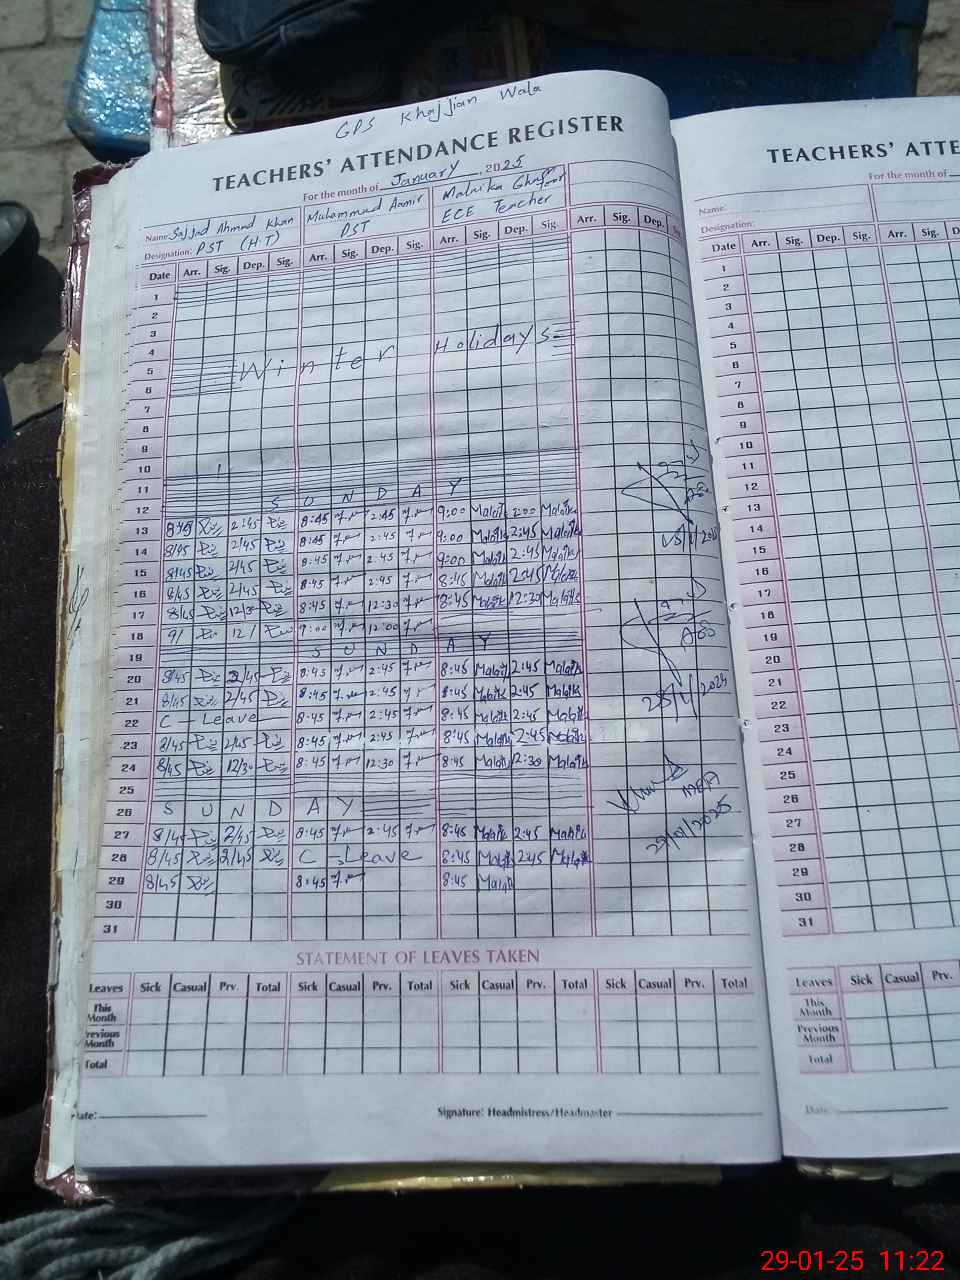 GPS Khajjian Wala
TEACHERS' ATTENDANCE REGISTER
For the month of January, 2025
Name: Sajjad Ahmad Khan Muhammad Aamir Malaika Ghafoor
Designation: PST (H.T) PST ECE Teacher
Date Arr. Sig. Dep. Sig. Arr. Sig. Dep. Sig. Arr. Sig. Dep. Sig. Arr. Sig. Dep. Sig.
1
2
3
4 Winter Holidays
5
6
7
8
9
10
11
12 SUNDAY
13 8/45 2:45 8:45 2:45 9:00 2:00
14 8/45 2/45 8:45 2:45 9:00 2:45
15 8/45 2/45 8:45 2:45 9:00 2:45
16 8/45 2/45 8:45 2:45 8:45 2:45
17 8/45 12/30 8:45 12:30 8:45 12:30
18 9/ 12/ 9:00 12:00
19 SUNDAY
20 8/45 2/45 8:45 2:45 8:45 2:45
21 8/45 2/45 8:45 2:45 8:45 2:45
22 C - Leave 8:45 2:45 8:45 2:45
23 8/45 2/45 8:45 2:45 8:45 2:45
24 8/45 12/30 8:45 12:30 8:45 12:30
25
26 SUNDAY
27 8/45 2/45 8:45 2:45 8:45 2:45
28 8/45 2/45 C - Leave 8:45 2:45
29 8/45 8:45 8:45
30
31
29/01/2025
STATEMENT OF LEAVES TAKEN
Leaves Sick Casual Prv. Total Sick Casual Prv. Total Sick Casual Prv. Total Sick Casual Prv. Total
This Month
Previous Month
Total
Date:
Signature: Headmistress/Headmaster
TEACHERS' ATTE
For the month of
Name:
Designation:
Date Arr. Sig. Dep. Sig. Arr. Sig.
1
2
3
4
5
6
7
8
9
10
11
12
13
14
15
16
17
18
19
20
21
22
23
24
25
26
27
28
29
30
31
Leaves Sick Casual Prv.
This Month
Previous Month
Total
Date:
29-01-25 11:22